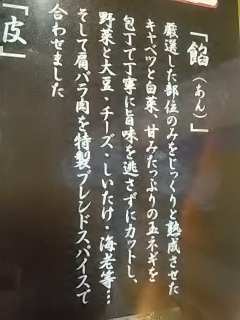 「餡(あん)」
厳選した部位のみをじっくりと熟成させた
キャベツと白菜、甘みたっぷりの玉ネギを
包丁で丁寧に旨味を逃さずにカットし、
野菜と大豆・チーズ・しいたけ・海老等…
そして肩バラ肉を特製ブレンドスパイスで
合わせました
「皮」